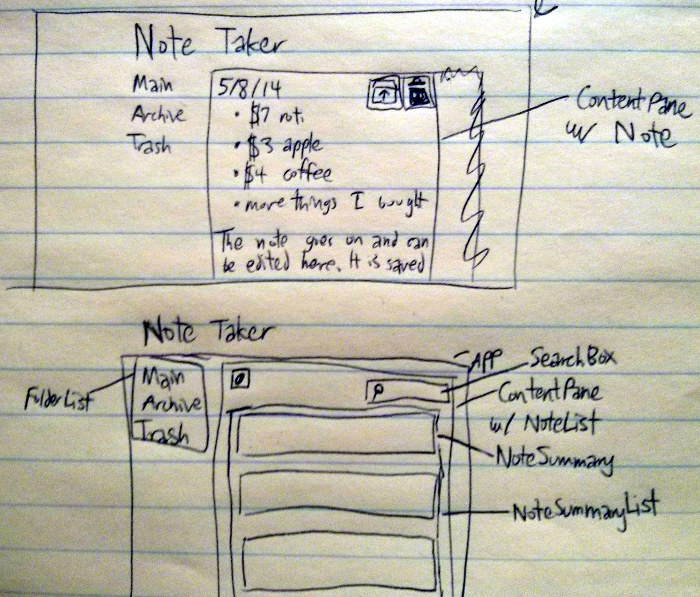 Note Taker
Main
Archive
Trash
5/8/14
• $7 roti
• $3 apple
• $4 coffee
• more things I bought
The note goes on and can
be edited here. It is saved
ContentPane
w/ Note
Note Taker
FolderList
Main
Archive
Trash
APP
SearchBox
ContentPane
w/ NoteList
NoteSummary
NoteSummaryList